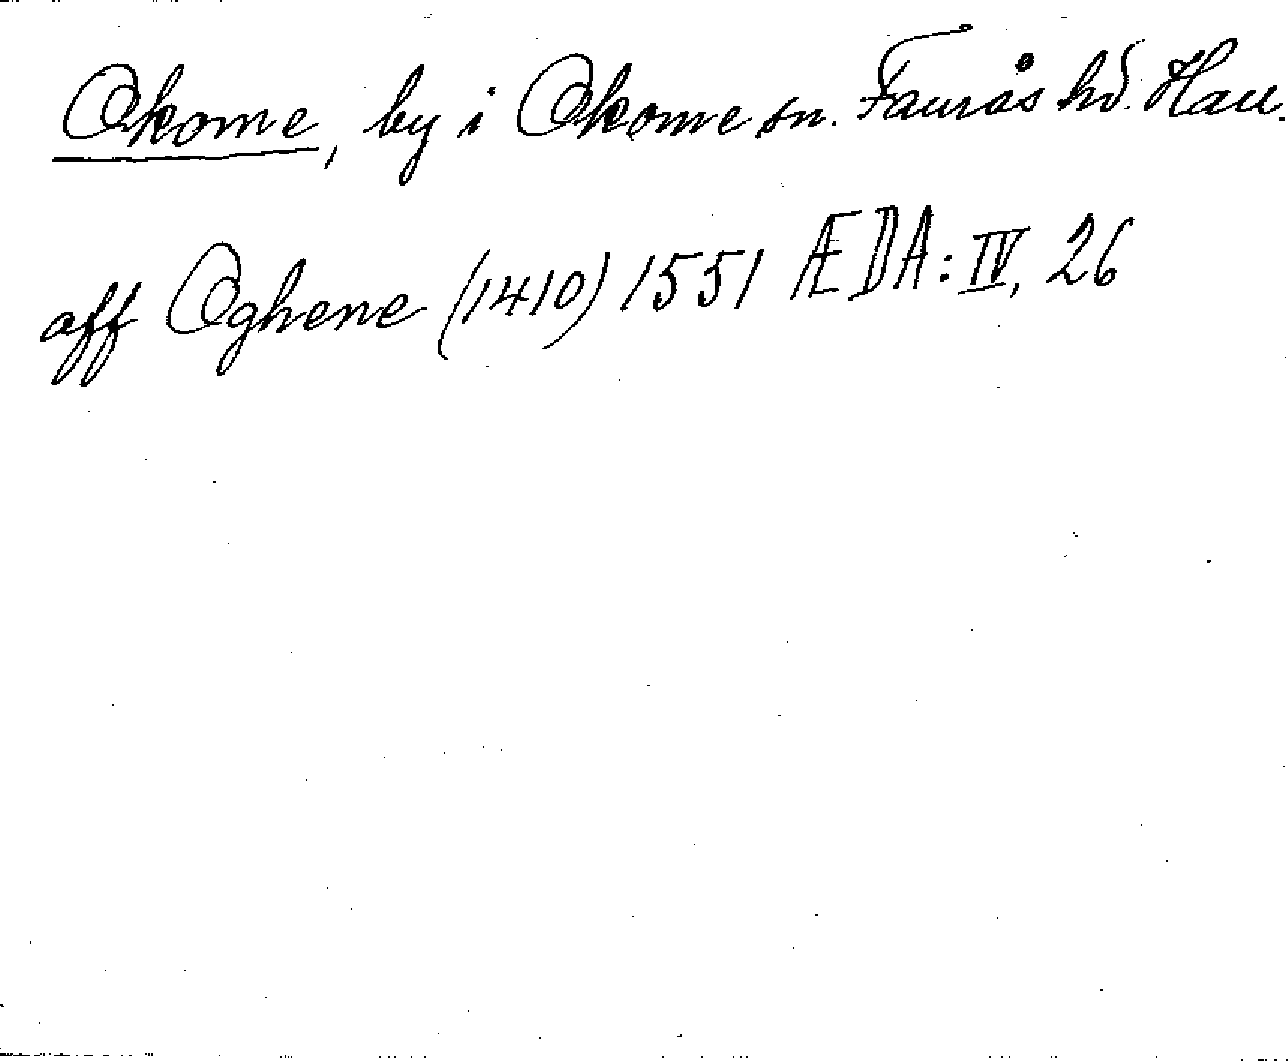 Okome, by i Okome sn. Faurås hd. Hall.
aff Oghene (1410) 1551 ÆDA: IV, 26